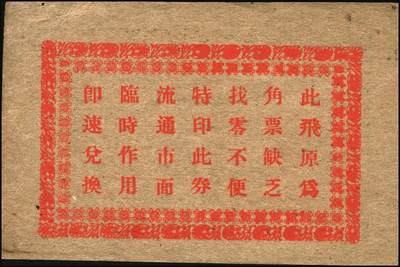 此飛原爲
角票缺乏
找零不便
特印此券
流通市面
臨時作用
即速兌換